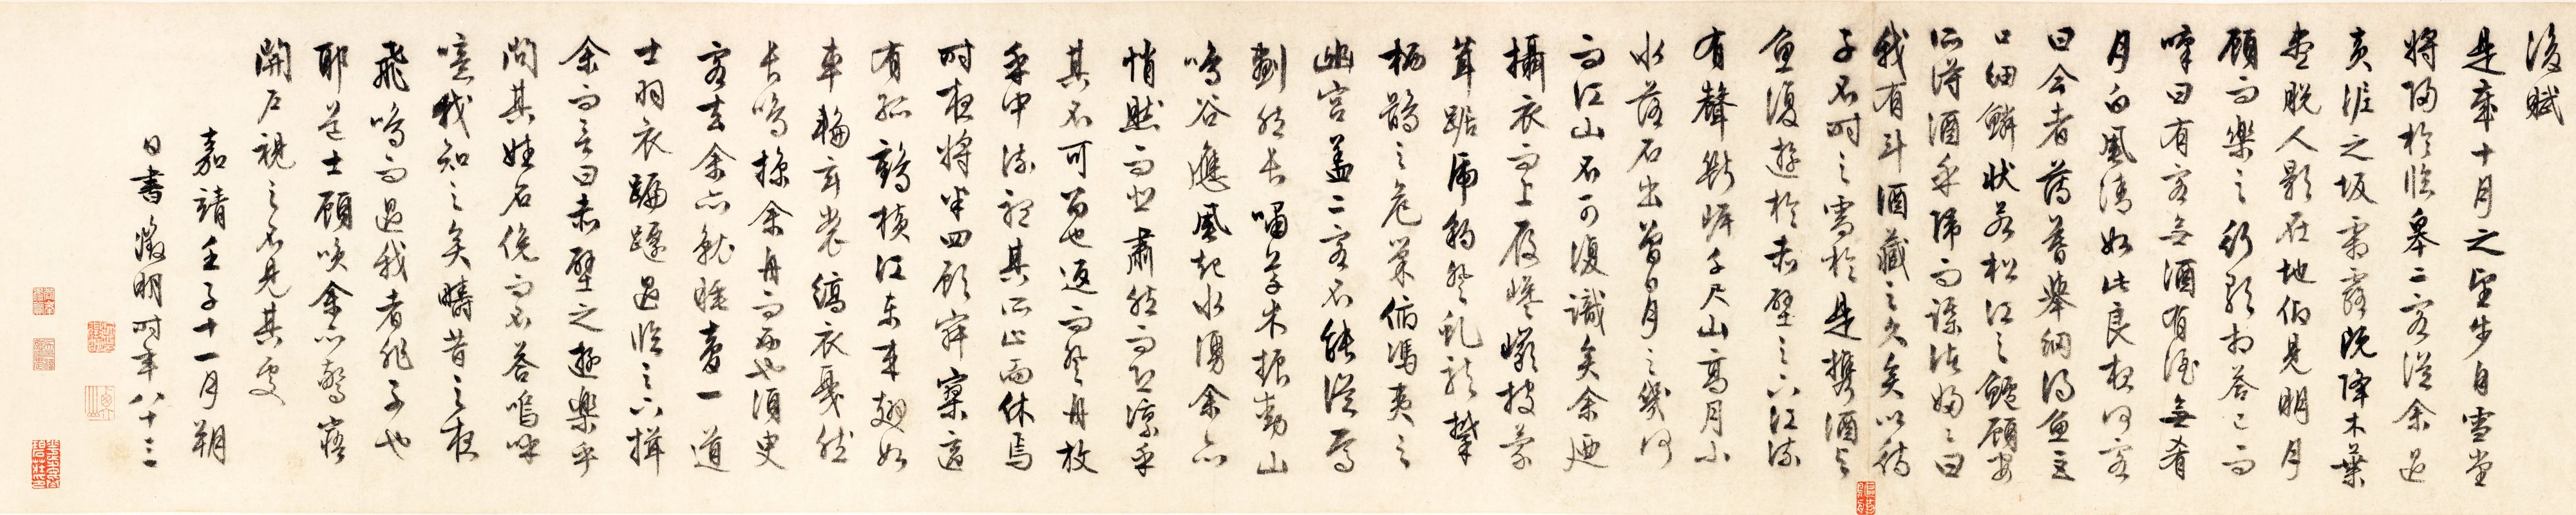 後賦
是歲十月之望步自雪堂
將歸於臨皋二客從余過
黃泥之坂霜露既降木葉
盡脫人影在地仰見明月
顧而樂之行歌相答已而
嘆曰有客無酒有酒無肴
月白風清如此良夜何客
曰今者薄暮舉網得魚巨
口細鱗狀若松江之鱸顧安
所得酒乎歸而謀諸婦〻曰
我有斗酒藏之久矣以待
子不時之需於是攜酒與
魚復遊於赤壁之下江流
有聲斷岸千尺山高月小
水落石出曾日月之幾何
而江山不可復識矣余廼
攝衣而上履巉巖披蒙
茸踞虎豹登虬龍攀
栖鶻之危巢俯馮夷之
幽宮蓋二客不能從焉
劃然長嘯草木振動山
鳴谷應風起水湧余亦
悄然而悲肅然而恐凜乎
其不可留也返而登舟放
乎中流聽其所止而休焉
時夜將半四顧寂寥適
有孤鶴橫江東來翅如
車輪玄裳縞衣戛然
長鳴掠余舟而西也須臾
客去余亦就睡夢一道
士羽衣蹁躚過臨之下揖
余而言曰赤壁之遊樂乎
問其姓名俛而不答嗚呼
噫我知之矣疇昔之夜
飛鳴而過我者非子也
耶道士顧笑余亦驚寤
開戶視之不見其處
嘉靖壬子十一月朔
日書徵明時年八十三